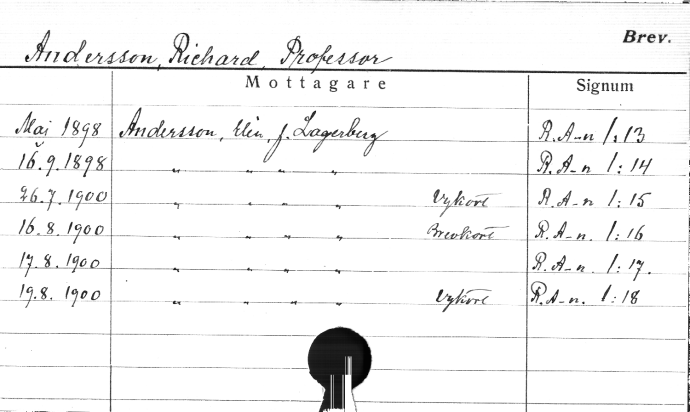 Brev.
Andersson, Richard, Professor
Mottagare Signum
Maj 1898 Andersson, Elin, f. Lagerberg R. A-n 1:13
16.9.1898 " " " " R. A-n 1:14
26.7.1900 " " " " Vykort R. A-n 1:15
16.8.1900 " " " " Brevkort R. A-n. 1:16
17.8.1900 " " " " R. A-n. 1:17.
19.8.1900 " " " " Vykort R. A-n. 1:18